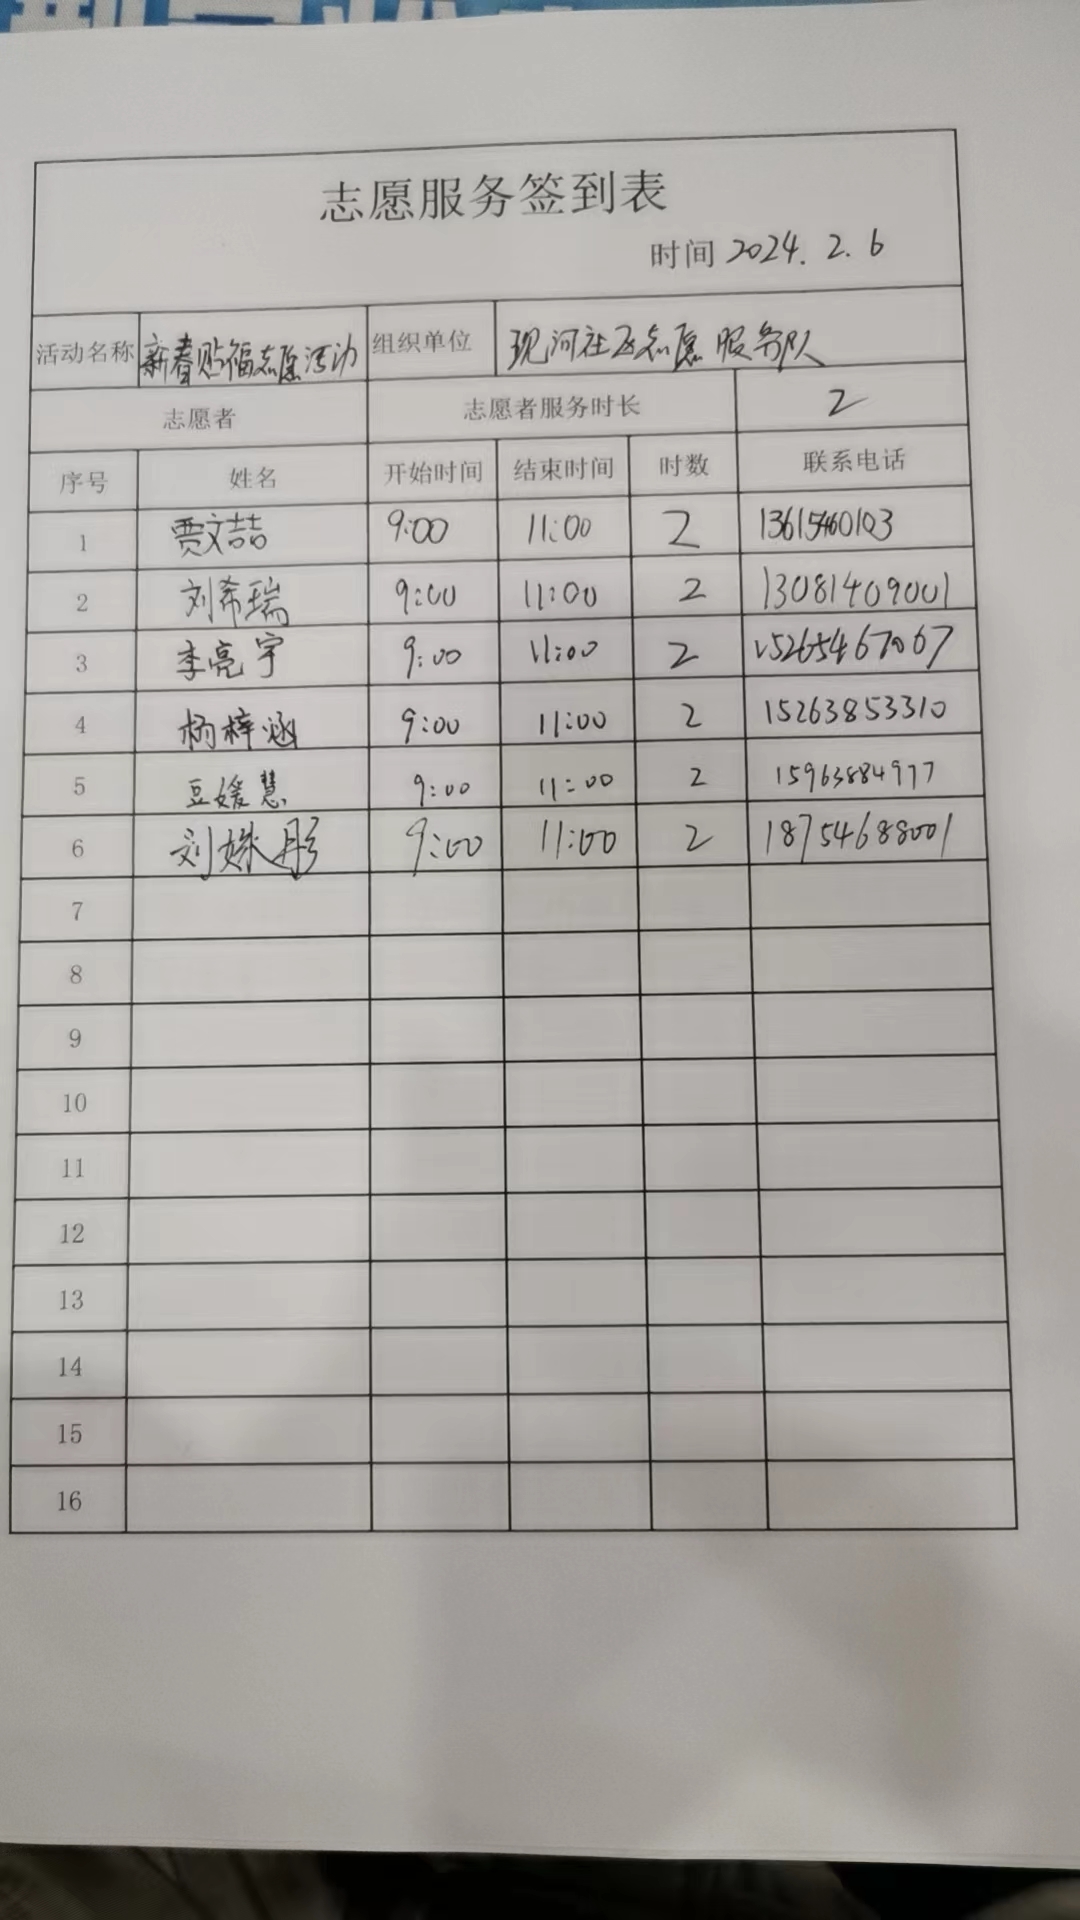 志愿服务签到表
时间 2024.2.6
活动名称 新春贴福志愿活动 组织单位 现河社区志愿服务队
志愿者 志愿者服务时长 2
序号 姓名 开始时间 结束时间 时数 联系电话
1 贾文喆 9:00 11:00 2 13615460103
2 刘希瑞 9:00 11:00 2 13081409001
3 李亮宇 9:00 11:00 2 15265467067
4 杨梓涵 9:00 11:00 2 15263853310
5 豆媛慧 9:00 11:00 2 15963884977
6 刘姝彤 9:00 11:00 2 18754688001
7
8
9
10
11
12
13
14
15
16